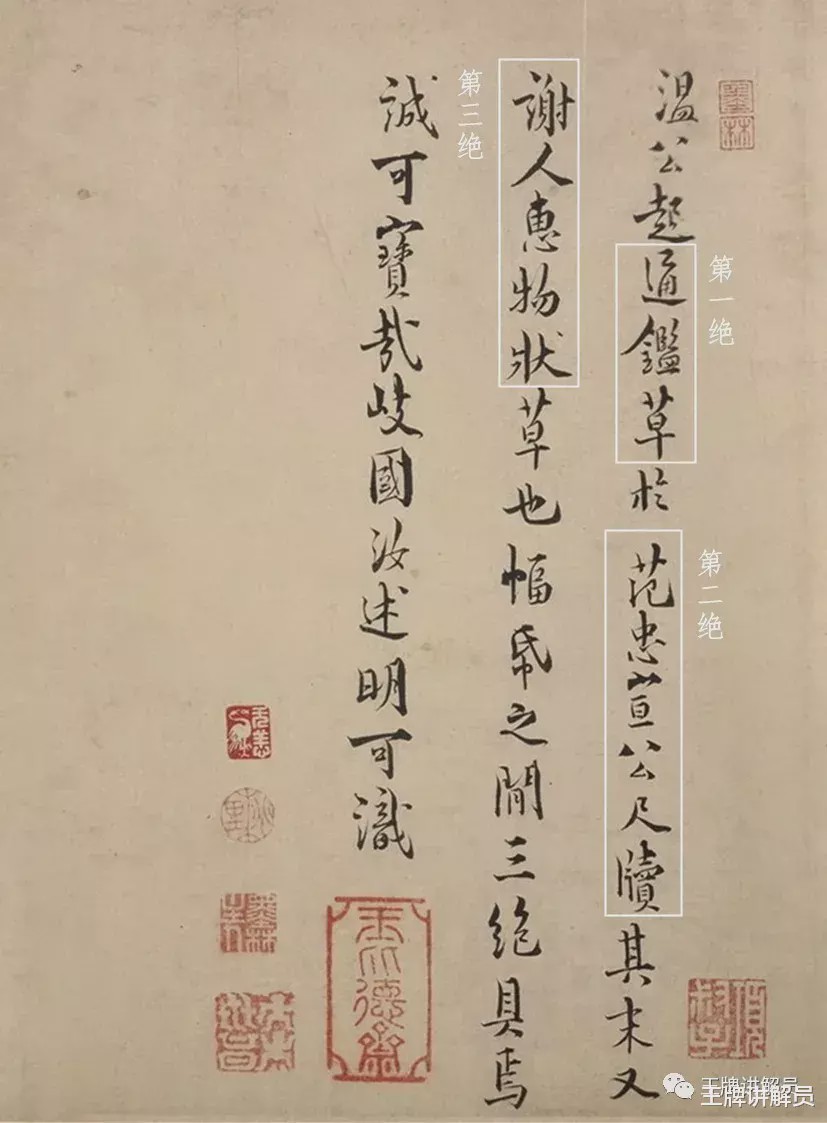 温公起通鑑草於范忠宣公尺牘其末又
謝人惠物狀草也幅帋之間三绝具焉
誠可寶哉歧國汝述明可識
第一绝
第二绝
第三绝
王牌讲解员
王牌讲解员